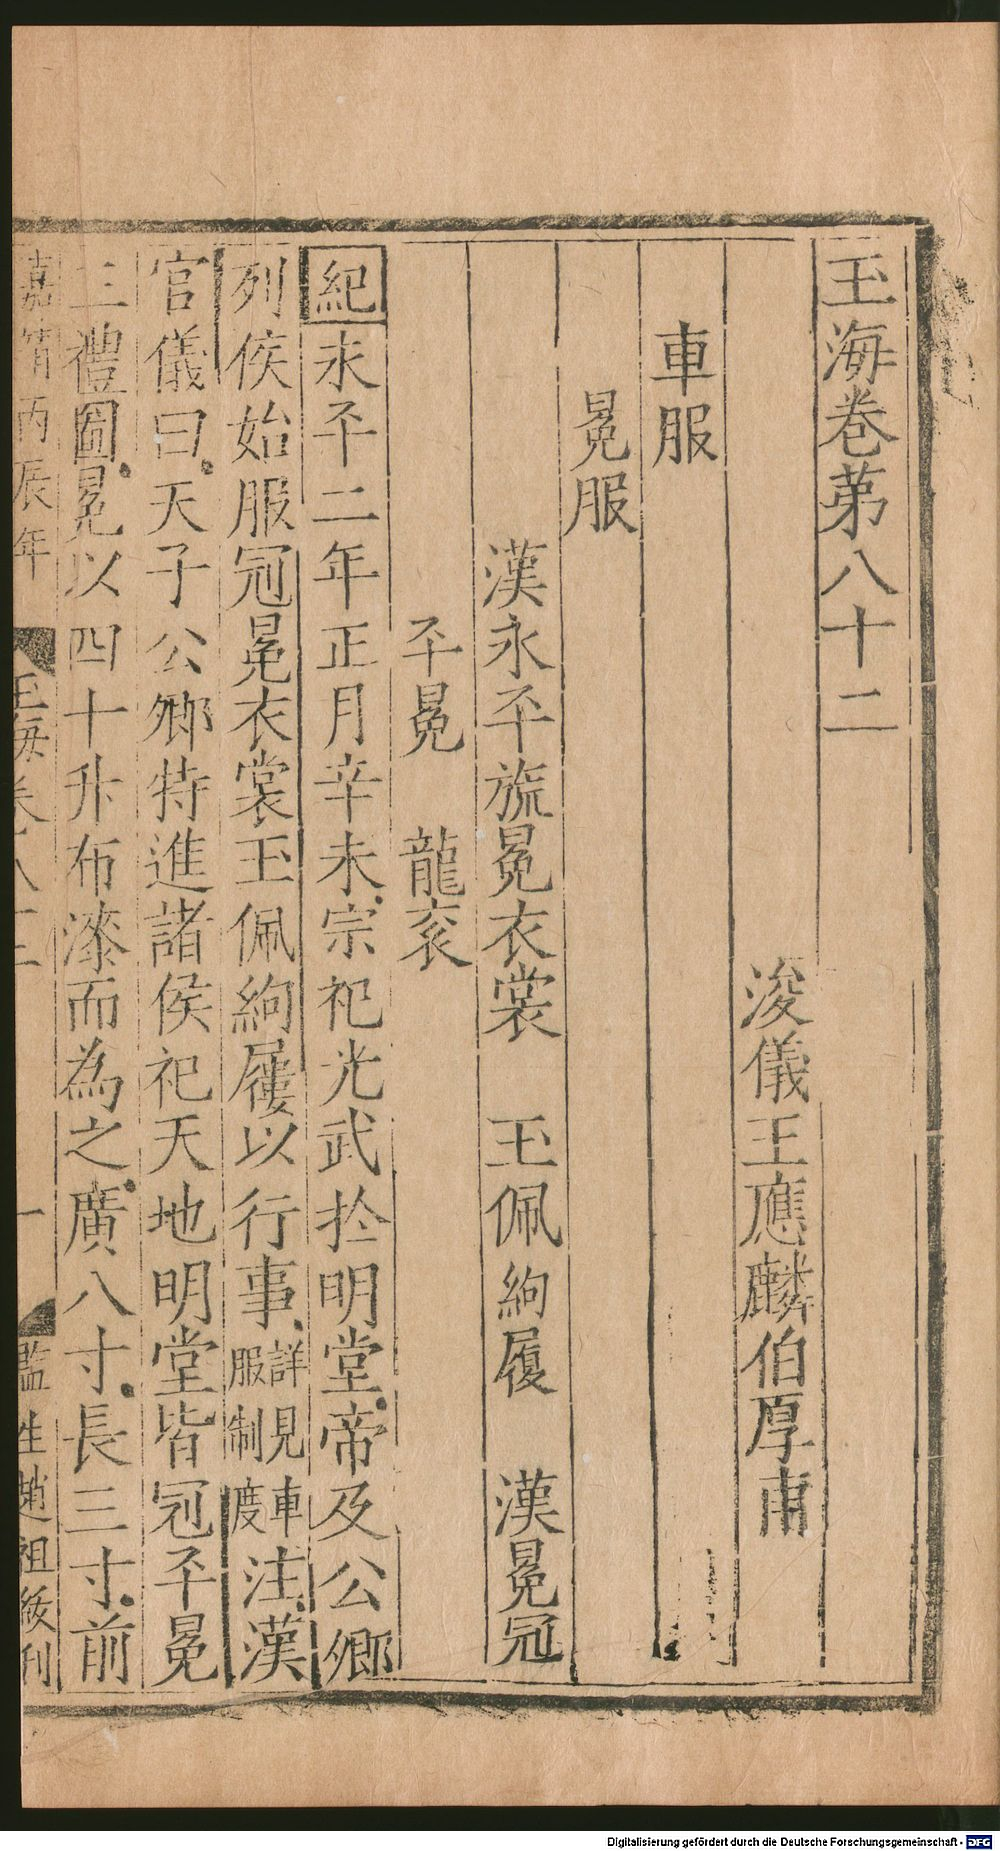 玉海卷第八十二
浚儀王應麟伯厚甫
車服
冕服
漢永平旒冕衣裳 玉佩絇履 漢冕冠
平冕 龍衮
紀永平二年正月辛未宗祀光武於明堂帝及公卿
列侯始服冠冕衣裳玉佩絇屨以行事詳見車服制度注漢
官儀曰天子公卿特進諸侯祀天地明堂皆冠平冕
三禮圖冕以四十升布漆而為之廣八寸長三寸前
嘉靖丙辰年 玉海卷八十二 一 監生趙祖 刊
Digitalisierung gefördert durch die Deutsche Forschungsgemeinschaft - DFG